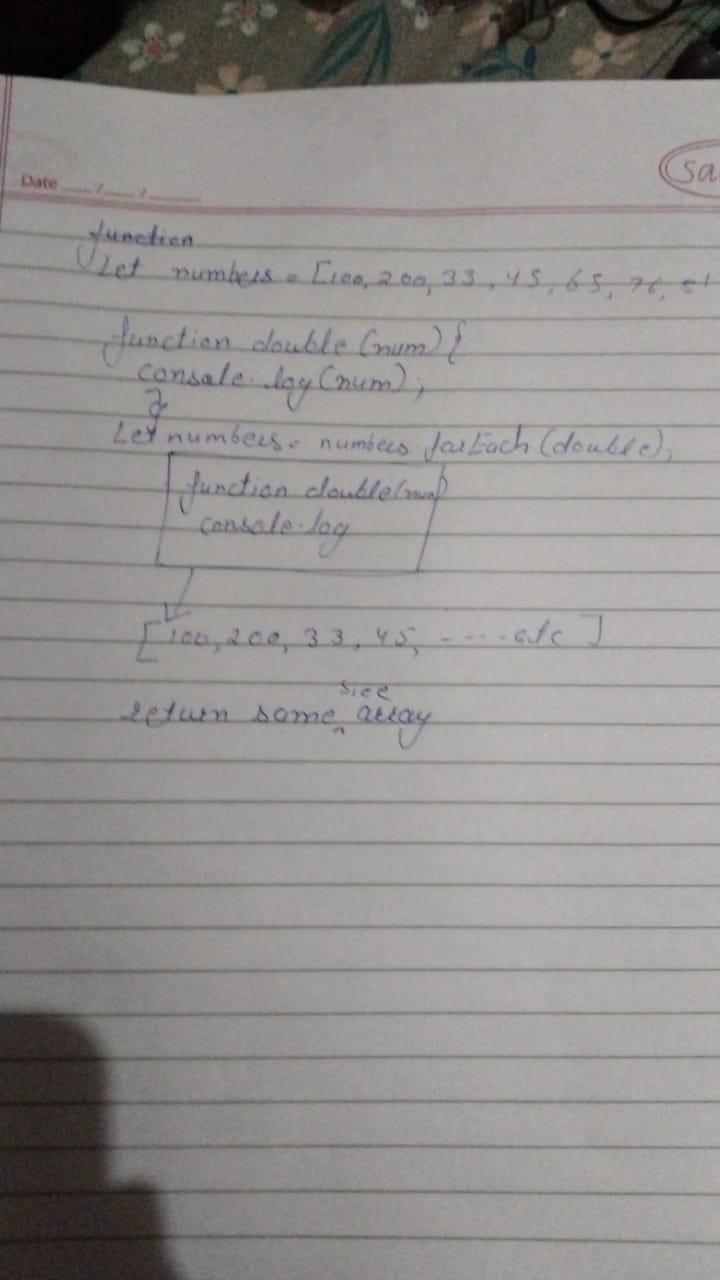 Date / /
Sa
function
Let numbers = [100, 200, 33, 45, 65, 76,
function double (num) {
console.log (num);
}
Let numbers = numbers forEach (double),
function double(num)
console.log
[100, 200, 33, 45, - --- etc ]
size
return same ^ array